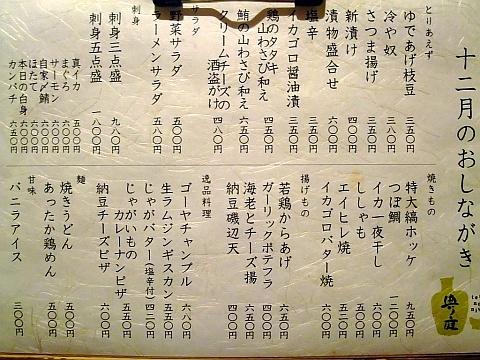 十二月のおしながき
とりあえず
ゆであげ枝豆 三五〇
冷や奴 三五〇
さつま揚げ 三五〇
新漬け 三〇〇
漬物盛合せ 四八〇
塩辛 三五〇
イカゴロ醤油漬 三五〇
鶏のタタキ
山わさび和え 四五〇
鮪の山わさび和え 六五〇
クリームチーズの
酒盗がけ 四八〇
サラダ
野菜サラダ 五〇〇
ラーメンサラダ 五八〇
刺身
刺身三点盛 九八〇
刺身五点盛 一八〇〇
真イカ
まぐろ
サーモン
自家〆鯖
ほたて
本日の白身
カンパチ
焼きもの
特大縞ホッケ 九五〇
つぼ鯛 一二〇〇
イカ一夜干し 六〇〇
ししゃも
エイヒレ焼 五二〇
イカゴロバター焼 六〇〇
揚げもの
若鶏からあげ
ガーリックポテフラ 四〇〇
海老とチーズ揚 六〇〇
納豆磯辺天 四〇〇
逸品料理
ゴーヤチャンプル 六八〇
生ラムジンギスカン 六五〇
じゃがバター(塩辛付) 四二〇
じゃがいもの
カレーナンピザ 五五〇
納豆チーズピザ 六〇〇
麺
焼きうどん 五〇〇
あったか鶏めん 五五〇
甘味
バニラアイス 三〇〇